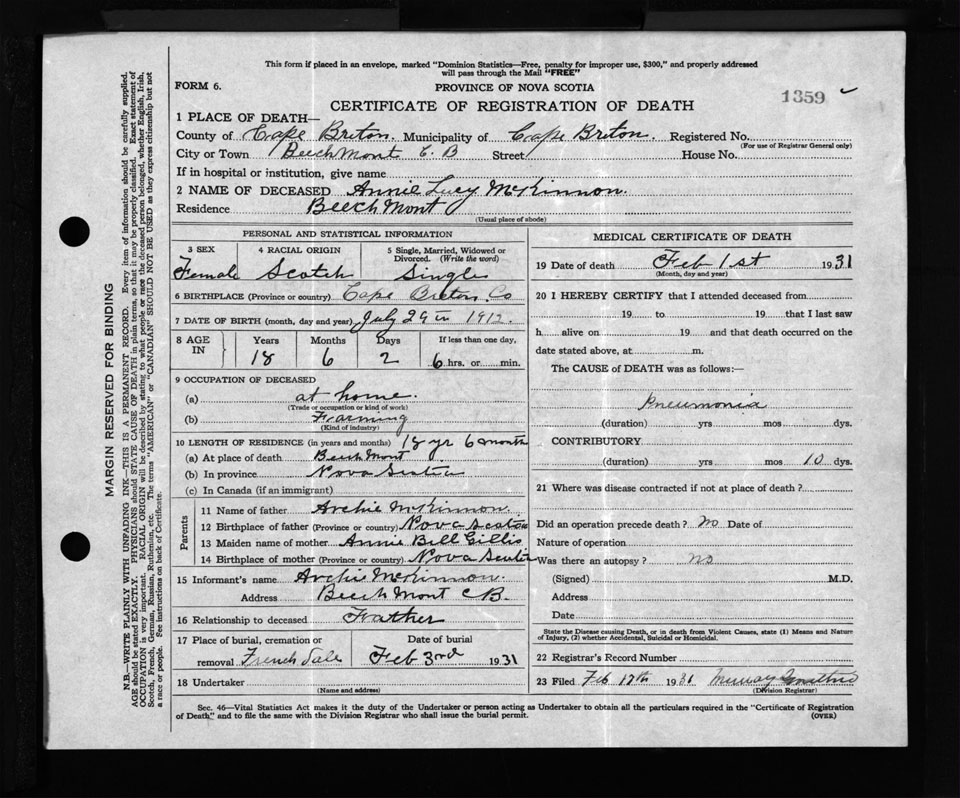 This form if placed in an envelope, marked "Dominion Statistics—Free, penalty for improper use, $300," and properly addressed
will pass through the Mail "FREE"
FORM 6.
PROVINCE OF NOVA SCOTIA
1359
CERTIFICATE OF REGISTRATION OF DEATH
1 PLACE OF DEATH—
County of Cape Breton. Municipality of Cape Breton. Registered No.
(For use of Registrar General only)
City or Town Beechmont C. B Street House No.
If in hospital or institution, give name
2 NAME OF DECEASED Annie Lucy McKinnon.
Residence Beechmont
(Usual place of abode)
PERSONAL AND STATISTICAL INFORMATION
3 SEX 4 RACIAL ORIGIN 5 Single, Married, Widowed or
Divorced. (Write the word)
Female Scotch Single
6 BIRTHPLACE (Province or country) Cape Breton. Co
7 DATE OF BIRTH (month, day and year) July 29th 1912.
8 AGE IN Years Months Days If less than one day,
18 6 2 6 hrs. or min.
9 OCCUPATION OF DECEASED
(a) at home.
(Trade or occupation or kind of work)
(b) Farming
(Kind of industry)
10 LENGTH OF RESIDENCE (in years and months) 18 yr 6 month
(a) At place of death Beechmont
(b) In province Nova Scotia
(c) In Canada (if an immigrant)
Parents
11 Name of father Archie McKinnon.
12 Birthplace of father (Province or country) Nova Scotia
13 Maiden name of mother Annie Bell Gillis
14 Birthplace of mother (Province or country) Nova Scotia
15 Informant's name Archie McKinnon.
Address Beechmont CB.
16 Relationship to deceased Father
17 Place of burial, cremation or Date of burial
removal French Vale Feb 3rd 1931
18 Undertaker
(Name and address)
MEDICAL CERTIFICATE OF DEATH
19 Date of death Feb 1st 1931
(Month, day and year)
20 I HEREBY CERTIFY that I attended deceased from
19 to 19 that I last saw
h alive on 19 and that death occurred on the
date stated above, at m.
The CAUSE of DEATH was as follows:—
Pneumonia
(duration) yrs mos dys.
CONTRIBUTORY
(duration) yrs mos 10 dys.
21 Where was disease contracted if not at place of death?
Did an operation precede death? No Date of
Nature of operation
Was there an autopsy? No
(Signed) M.D.
Address
Date
State the Disease causing Death, or in death from Violent Causes, state (1) Means and Nature
of Injury, (2) whether Accidental, Suicidal or Homicidal.
22 Registrar's Record Number
23 Filed Feb 17th 1931 Murray
(Division Registrar)
Sec. 46—Vital Statistics Act makes it the duty of the Undertaker or person acting as Undertaker to obtain all the particulars required in the "Certificate of Registration
of Death," and to file the same with the Division Registrar who shall issue the burial permit.
(OVER)
MARGIN RESERVED FOR BINDING
N.B.—WRITE PLAINLY WITH UNFADING INK—THIS IS A PERMANENT RECORD. Every item of information should be carefully supplied.
AGE should be stated EXACTLY. PHYSICIANS should STATE CAUSE OF DEATH in plain terms, so that it may be properly classified. Exact statement of
OCCUPATION is very important. RACIAL ORIGIN will be described by stating to what people or race the deceased person belonged, whether English, Irish,
Scotch, French, German, Russian, Ruthenian, etc. The terms "AMERICAN" or "CANADIAN" SHOULD NOT BE USED as they express citizenship but not
a race or people. See instructions on back of Certificate.